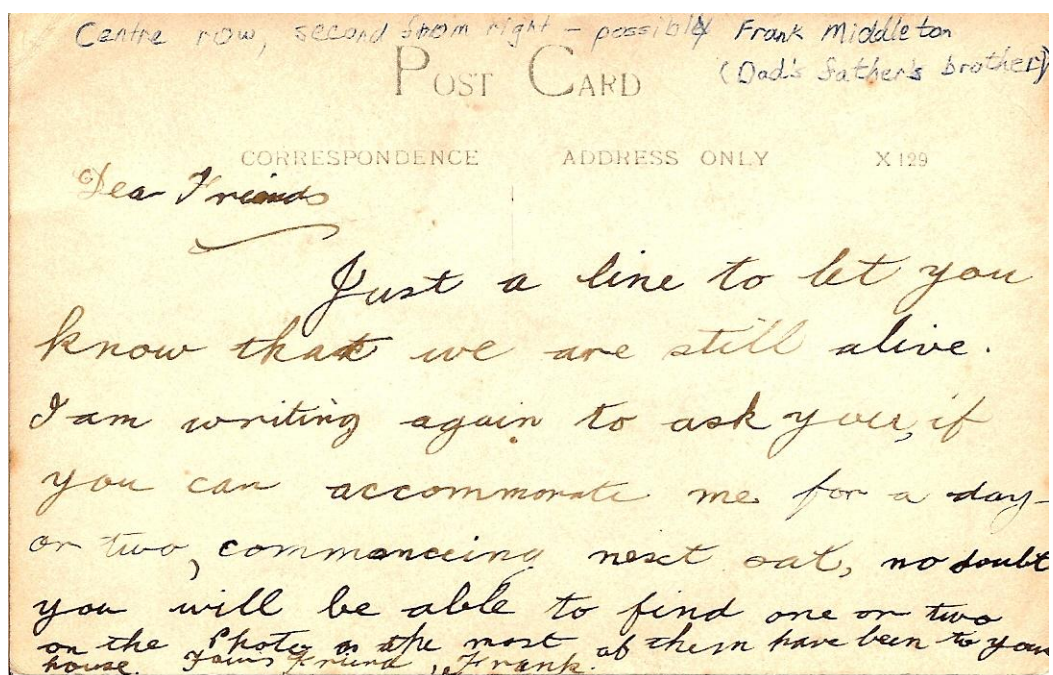 Centre row, second from right - possibly Frank Middleton
(Dad's father's brother)
POST CARD
CORRESPONDENCE ADDRESS ONLY X 129
Dear Friends
Just a line to let you
know that we are still alive.
I am writing again to ask you, if
you can accommorate me for a day
or two, commenceing next sat, no doubt
you will be able to find one or two
on the Photo as the most of them have been to your
house. Yours Friend, Frank.